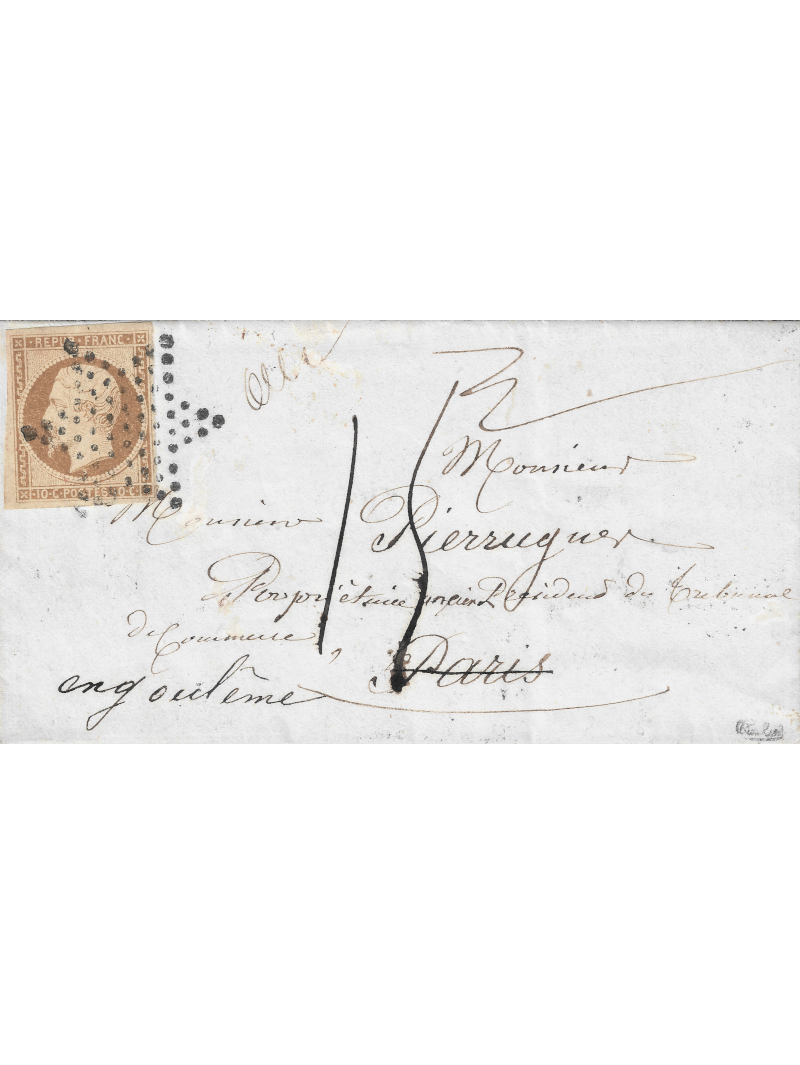 REPUB FRANC
10·C·POSTES·10·C·
15
Monsieur
Monsieur Pierrugues
Propriétaire ancien President du Tribunal
de Commerce
Paris
engoulême